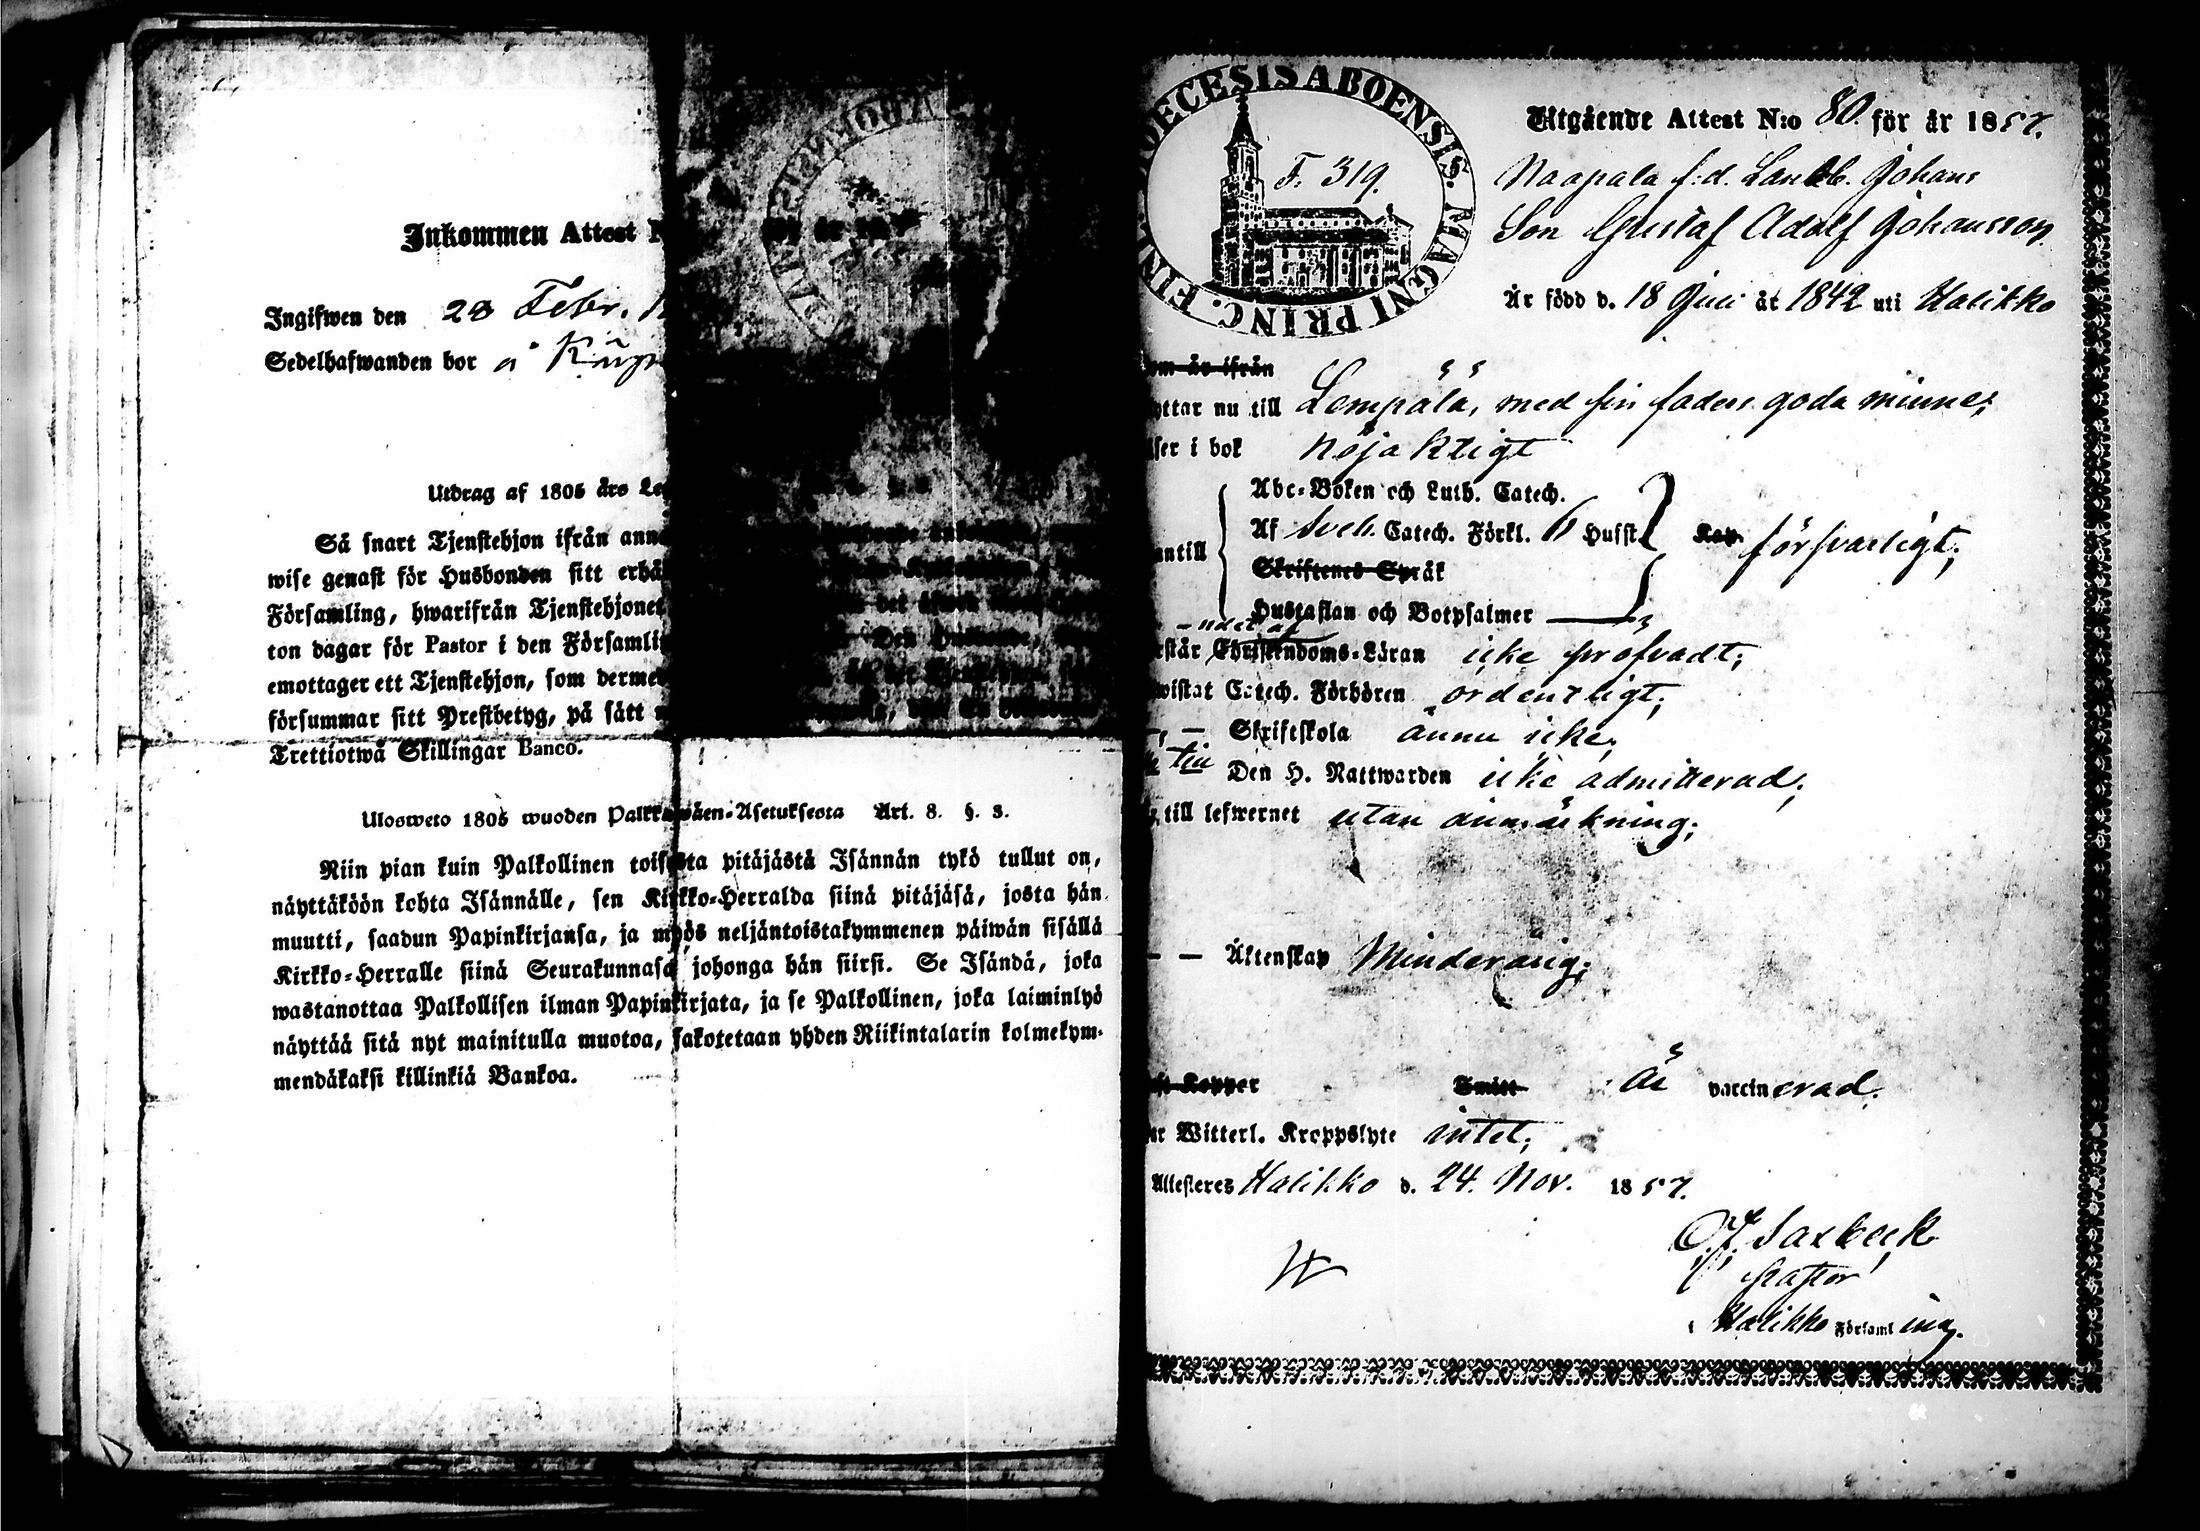 Inkommen Attest N
Ingifwen den 28 Febr.
Sedelhafwanden bor å
Utdrag af 1805 års Le
Så snart Tjenstehjon ifrån ann
wise genast för Husbonden sitt erhå
Församling, hwarifrån Tjenstehjonet
ton dagar för Pastor i den Församli
emottager ett Tjenstehjon, som derme
försummar sitt Prestbetyg, på sätt
Trettiotwå Skillingar Banco.
Ulosweto 1805 wuoden Palkkawäen-Asetuksesta Art. 8. §. 3.
Niin pian kuin Palkollinen toisesta pitäjästä Isännän tykö tullut on,
näyttäköön kohta Isännälle, sen Kirkko-Herralda siinä pitäjäsä, josta hän
muutti, saadun Papinkirjansa, ja myös neljäntoistakymmenen päiwän sisällä
Kirkko-Herralle siinä Seurakunnasa johonga hän siirsi. Se Isändä, joka
wastanottaa Palkollisen ilman Papinkirjata, ja se Palkollinen, joka laiminlyö
näyttää sitä nyt mainitulla muotoa, sakotetaan yhden Riikintalarin kolmekym-
mendäkaksi killinkiä Bankoa.
DECESIS ABOENSIS. MAGNI PRINC. FIN
F. 319.
Utgående Attest N:o 80 för år 1857.
Naapala f.d. Landb. Johans
Son Gustaf Adolf Johansson
Är född d. 18 Juli år 1842 uti Halikko
om är ifrån
yttar nu till Lempälä, med sin faders goda minne;
äser i bok nöjaktigt
Abc-Boken och Luth. Catech.
Af Sveb. Catech. Förkl. Husst
antill Kap. försvarligt;
Skriftenes Språk
Hustaflan och Botpsalmer
rstår Christendoms-Läran icke pröfvadt;
wistat Catech. Förhören ordentligt;
— Skriftskola ännu icke;
till Den H. Nattwarden icke admitterad;
till lefwernet utan anmärkning;
— — Äktenskap Minderårig;
ft Koppor Smitt Är vaccinerad.
ar Witterl. Kroppslyte intet;
Attesteres Halikko d. 24. Nov. 1857.
Pastor
Halikko Församling.